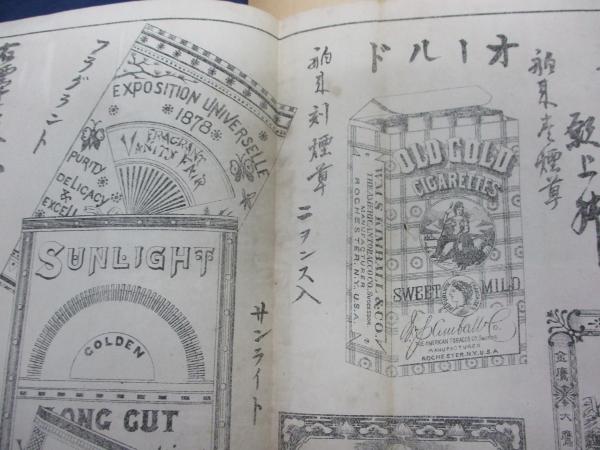 オールド
舶来巻煙草
舶来刻煙草
二ヲンス入
フラグラント
サンライト
EXPOSITION UNIVERSELLE
1878
FRAGRANT
VANITY FAIR
PURITY
DELICACY
& EXCELL
SUNLIGHT
GOLDEN
LONG CUT
OLD GOLD
CIGARETTES
SWEET MILD
Wm S. Kimball & Co.
THE AMERICAN TOBACCO CO. Successor
MANUFACTURER
ROCHESTER, N.Y. U.S.A.
WM. S. KIMBALL & CO.
THE AMERICAN TOBACCO CO. Successor
MANUFACTURER
ROCHESTER, N.Y. U.S.A.
金鷹
大鷹